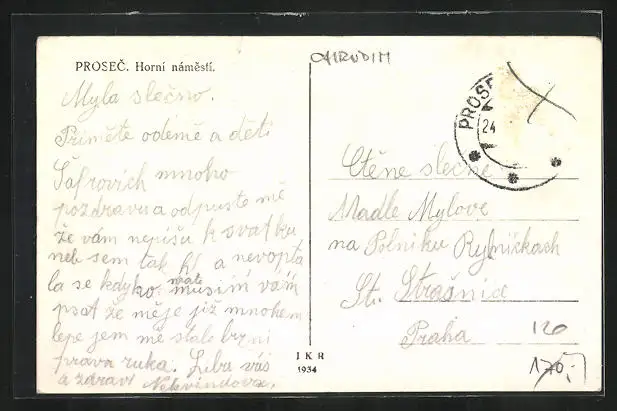 PROSEČ. Horní náměstí.
Myla slečno.
Přiměte odemě a děti
Šafrovich mnoho
pozdravu a odpuste mě
že vám nepišu k svatku
neb sem tak a nevopta
la se kdy ho mate musim vám
psat že měje již mnohem
lepe jem mě stale brni
prava ruka. Liba vás
a zdravi Nekvindova.
CHRUDIM
PROSE
24
Ctěne slečně
Madle Mylove
na Polniku Rybničkach
St. Strašnice
Praha
I K R
1934
170,-